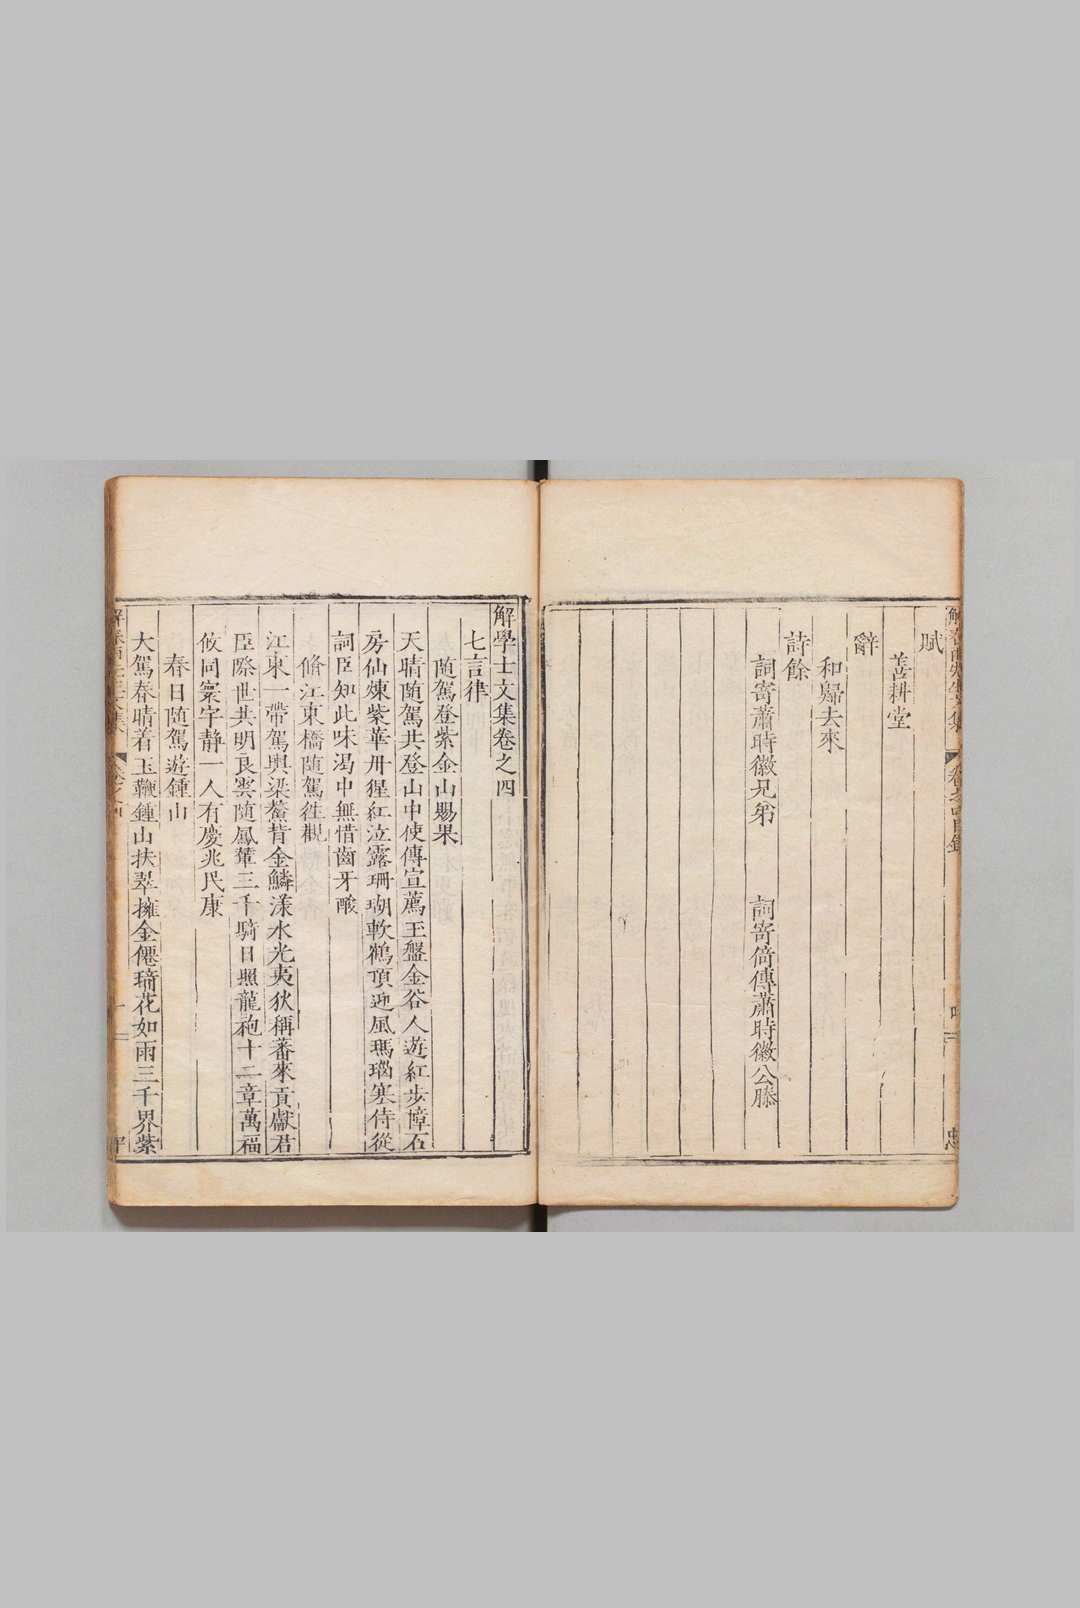 賦
善耕堂
辭
和歸去來
詩餘
詞寄蕭時徽兄弟　詞寄倚傳蕭時徽公滕
解學士文集卷之四
七言律
隨駕登紫金山賜果
天晴隨駕共登山中使傳宣薦玉盤金谷人遊紅步幛石
房仙煉紫華丹猩紅泣露珊瑚軟鶴頂迎風瑪瑙寒侍從
詞臣知此味渴中無惜齒牙酸
脩江東橋隨駕徃觀
江東一帶駕輿梁鰲背金鱗漾水光夷狄稱蕃來貢獻君
臣際世共明良雲隨鳳輦三千騎日照龍袍十二章萬福
攸同寰宇靜一人有慶兆民康
春日隨駕遊鍾山
大駕春晴着玉鞭鍾山扶翠擁金僊琦花如雨三千界紫